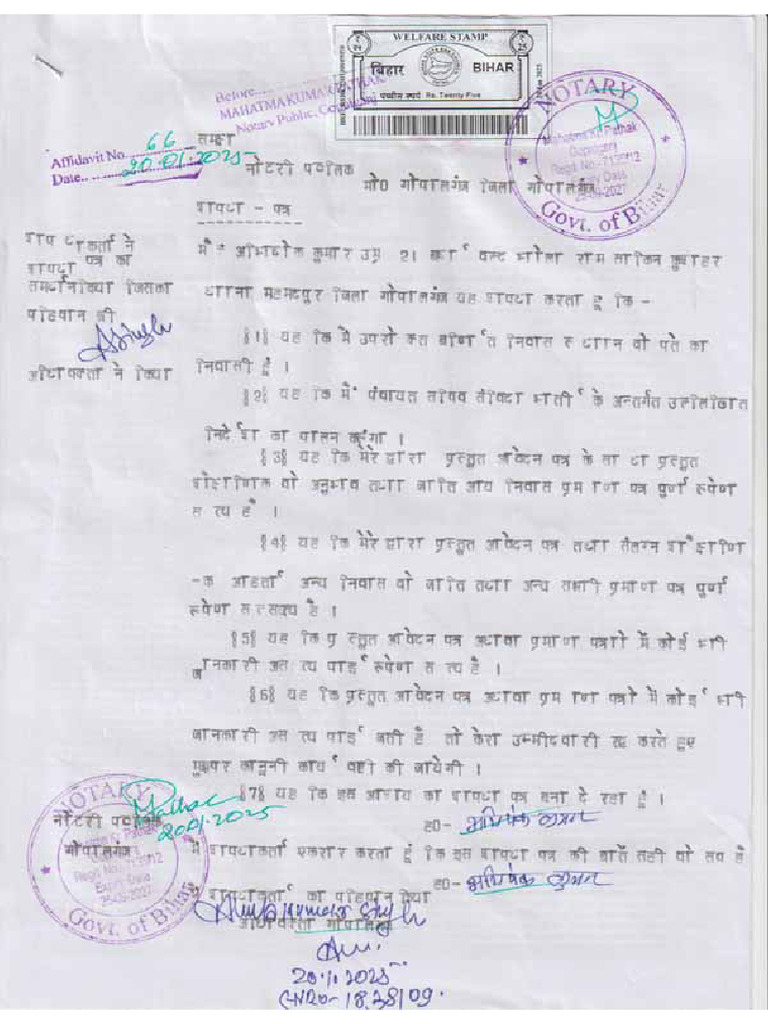 WELFARE STAMP
बिहार BIHAR
पच्चीस रूपये Rs. Twenty Five
Before
MAHATMA KUMAR PATHAK
Notary Public, Gopalganj
NOTARY
Mahatma Kr. Pathak
Gopalganj
Regd. No.
Expiry Date
25-09-2027
Govt. of Bihar
Affidavit No. 66
Date 20.01.2025
समक्ष
नोटरी पब्लिक
मो0 गोपालगंज जिला गोपालगंज
शपथ - पत्र
शपथकर्ता ने
शपथ पत्र का
समर्थन किया जिसका
पहिचान श्री
Abhishek
अधिवक्ता ने किया
मैं - अभिषेक कुमार उम्र 21 वर्ष वल्द भोला राम साकिन
थाना महमदपुर जिला गोपालगंज यह शपथ करता हूं कि -
§1§ यह कि मे उपरोक्त वर्णित निवास स्थान वो पते का
निवासी हूं ।
§2§ यह कि मैं पंचायत सचिव संविदा भर्ती के अन्तर्गत उल्लिखित
निर्देश का पालन करूंगा ।
§3§ यह कि मेरे द्वारा प्रस्तुत आवेदन पत्र के साथ प्रस्तुत
शैक्षणिक वो अनुभव तथा जाति आय निवास प्रमाण पत्र पुर्ण रूपेण
सत्य है ।
§4§ यह कि मेरे द्वारा प्रस्तुत आवेदन पत्र तथा संलग्न शैक्षणि
-क अहर्ता अन्य निवास वो जाति तथा अन्य सभी प्रमाण पत्र पुर्ण
रूपेण सत्य है ।
§5§ यह कि प्रस्तुत आवेदन पत्र अथवा प्रमाण पत्रो में कोई भी
जानकारी असत्य पाई रूपेण सत्य है ।
§6§ यह कि प्रस्तुत आवेदन पत्र अथवा प्रमाण पत्रो में कोई भी
जानकारी असत्य पाई जाती है तो मेरा उम्मीदवारी रद्द करते हुए
मुझपर कानूनी कार्यवाही की जायेगी ।
§7§ यह कि इस आशय का शपथ पत्र बना दे रहा हूं ।
ह0- अभिषेक कुमार
NOTARY
Pathak
20/01/2025
नोटरी पब्लिक
गोपालगंज
Regd. No.
Expiry Date
25-09-2027
Govt. of Bihar
मै शपथकर्ता एकरार करता हूं कि इस शपथ पत्र की बातें सही वो सच है
ह0- अभिषेक कुमार
शपथकर्ता का पहिचान किया
Kumar Singh
अधिवक्ता गोपालगंज
20/1/2025